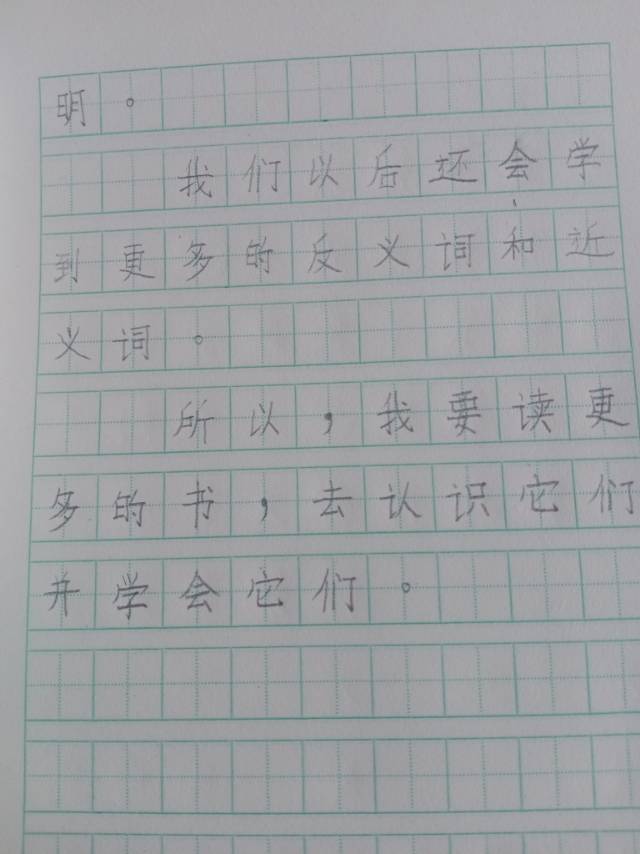 明。
我们以后还会学
到更多的反义词和近
义词。
所以，我要读更
多的书，去认识它们
并学会它们。